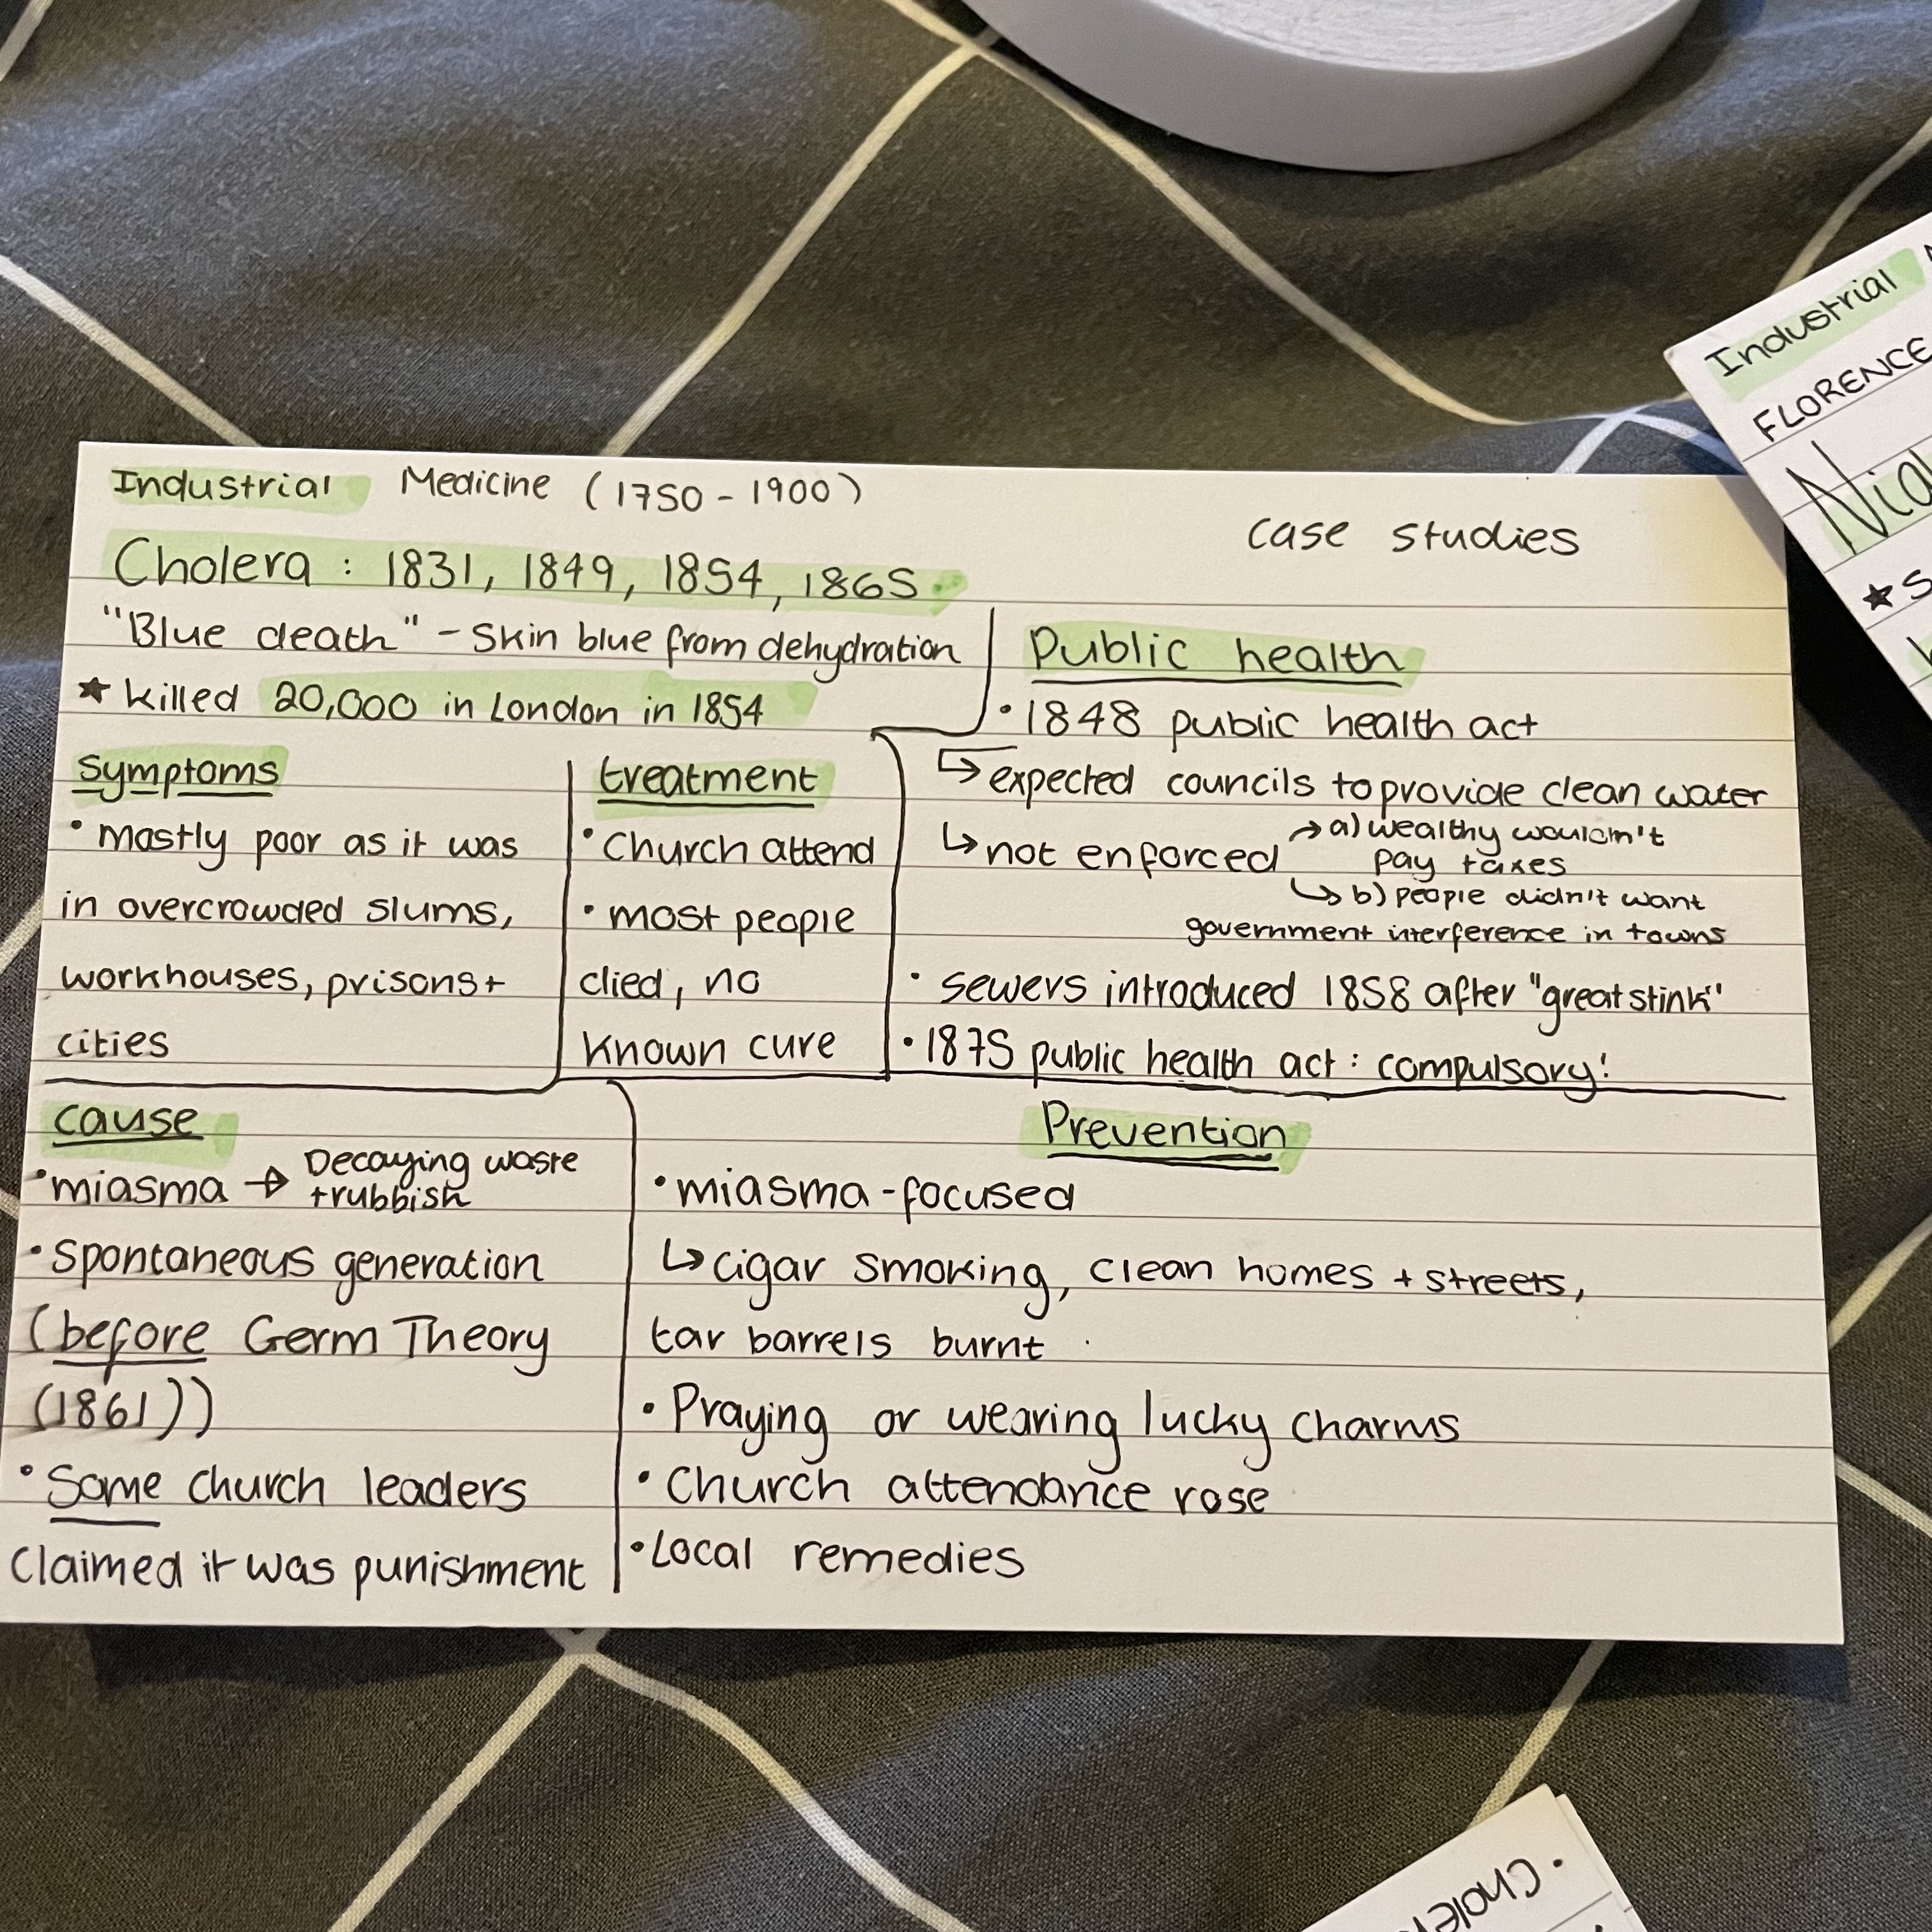 Industrial Medicine (1750 - 1900)
case studies
Cholera : 1831, 1849, 1854, 1865
"Blue death" - Skin blue from dehydration
★ killed 20,000 in London in 1854
symptoms
• mostly poor as it was
in overcrowded slums,
workhouses, prisons +
cities
treatment
• Church attend
• most people
died, no
known cure
Public health
• 1848 public health act
↳ expected councils to provide clean water
↳ not enforced → a) wealthy wouldn't
pay taxes
↳ b) people didn't want
government interference in towns
• sewers introduced 1858 after "great stink"
• 1875 public health act : compulsory!
cause
• miasma → Decaying waste
+ rubbish
• Spontaneous generation
(before Germ Theory
(1861))
• Some church leaders
claimed it was punishment
Prevention
• miasma - focused
↳ cigar smoking, clean homes + streets,
tar barrels burnt
• Praying or wearing lucky charms
• Church attendance rose
• Local remedies
Industrial
FLORENCE